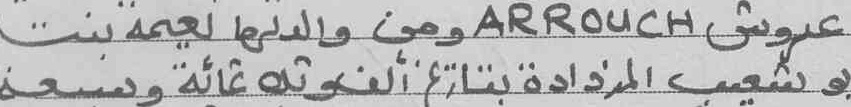 عروش ARROUCH ومن والدتها نعيمة بنت
بوشعيب المزدادة بتاريخ ألف وتسعمائة وسبعة